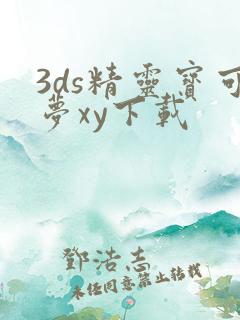 3ds精靈寶可
夢xy下載
鄧浩志
未經同意禁止轉載